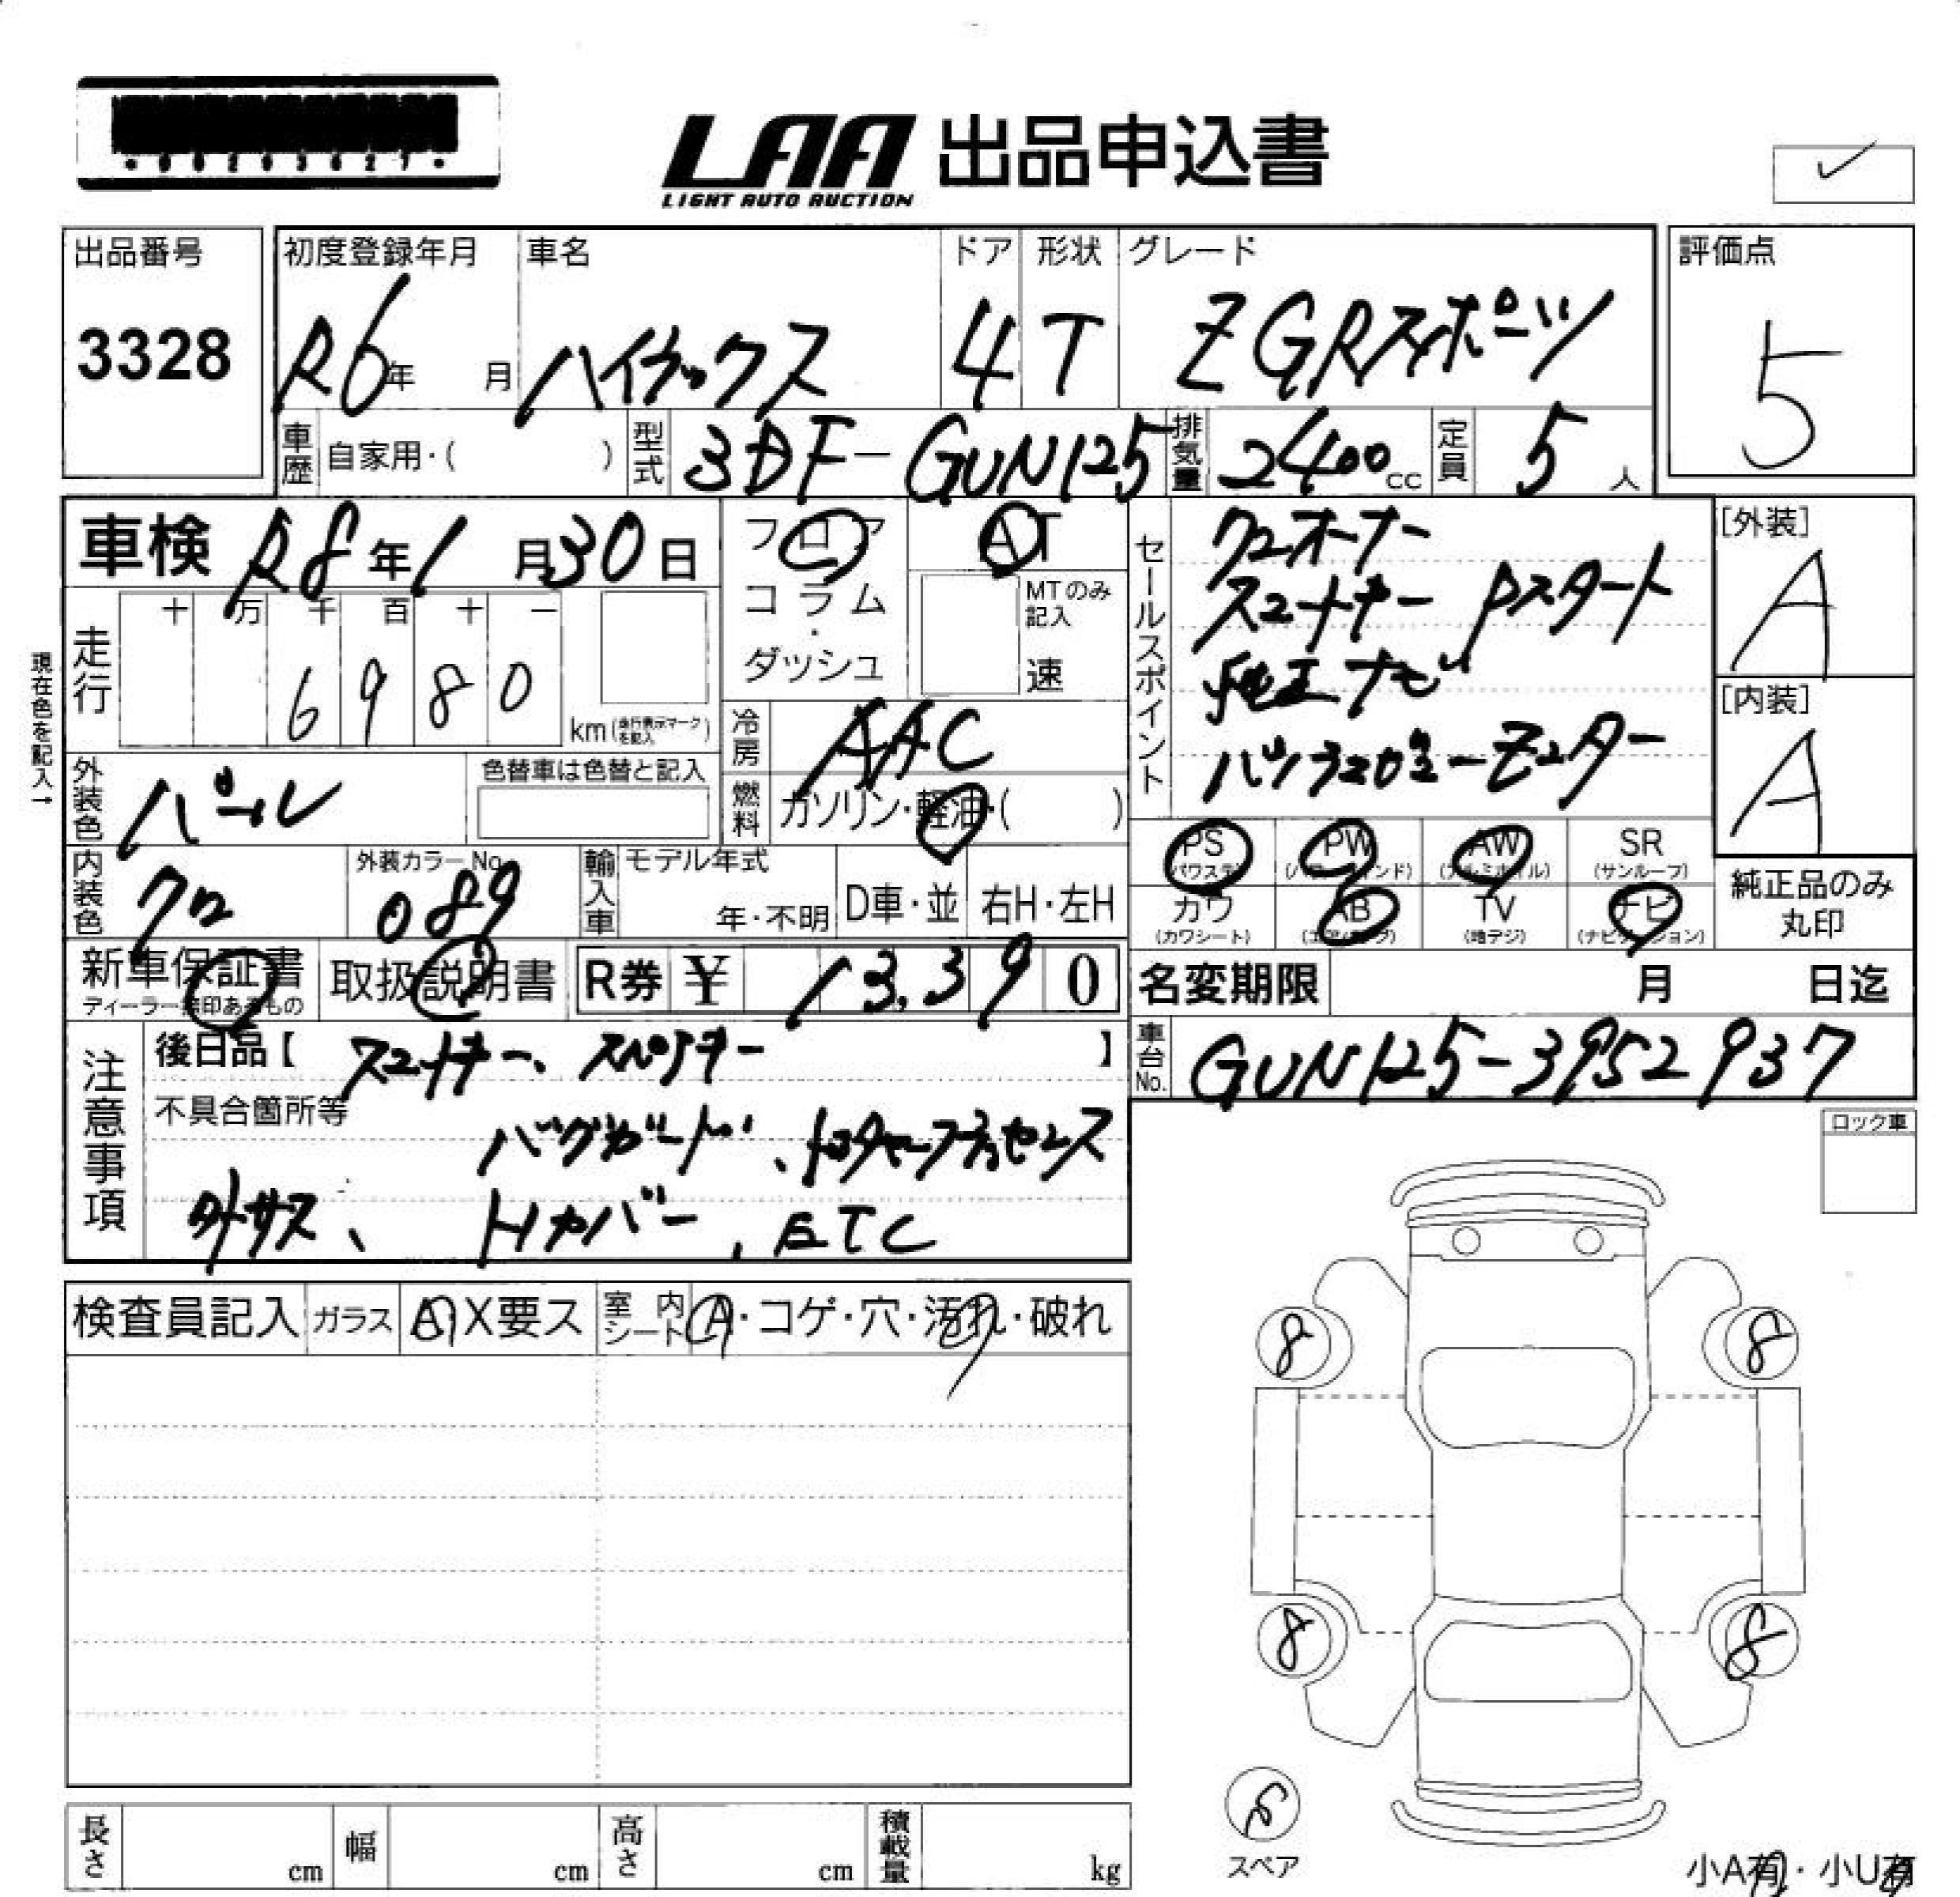 LAA 出品申込書
LIGHT AUTO AUCTION
出品番号
3328
初度登録年月
R6年 月
車名
ハイラックス
ドア
4
形状
T
グレード
Z GRスポーツ
評価点
5
車歴
自家用・( )
型式
3DF-GUN125
排気量
2400cc
定員
5人
車検 R8年1月30日
フロア
コラム
・
ダッシュ
AT
MTのみ記入
速
現在色を記入→
走行
十 万 千 百 十 一
6 9 8 0
km(走行表示マークを記入)
冷房
AAC
燃料
ガソリン・軽油・( )
外装色
パール
色替車は色替と記入
内装色
クロ
外装カラーNo.
089
輸入車
モデル年式
年・不明
D車・並
右H・左H
セールスポイント
ワンオーナー
スマートキー Pスタート
純正ナビ
パノラミックビューモニター
[外装]
A
[内装]
A
PS (パワステ)
PW (パワーウインド)
AW (アルミホイル)
SR (サンルーフ)
カワ (カワシート)
AB (エアバック)
TV (地デジ)
ナビ (ナビゲーション)
純正品のみ丸印
新車保証書
ディーラー無印あるもの
取扱説明書
R券 ¥ 13,390
名変期限 月 日迄
車台No.
GUN125-3952937
注意事項
後日品【 スマートキー、スペアキー 】
不具合箇所等
バックガード、トヨタセーフティセンス
外サス、Hカバー、ETC
ロック車
検査員記入
ガラス
A・X要ス
室内シート
A・コゲ・穴・汚れ・破れ
8
8
8
8
スペア
長さ cm
幅 cm
高さ cm
積載量 kg
小A有・小U有